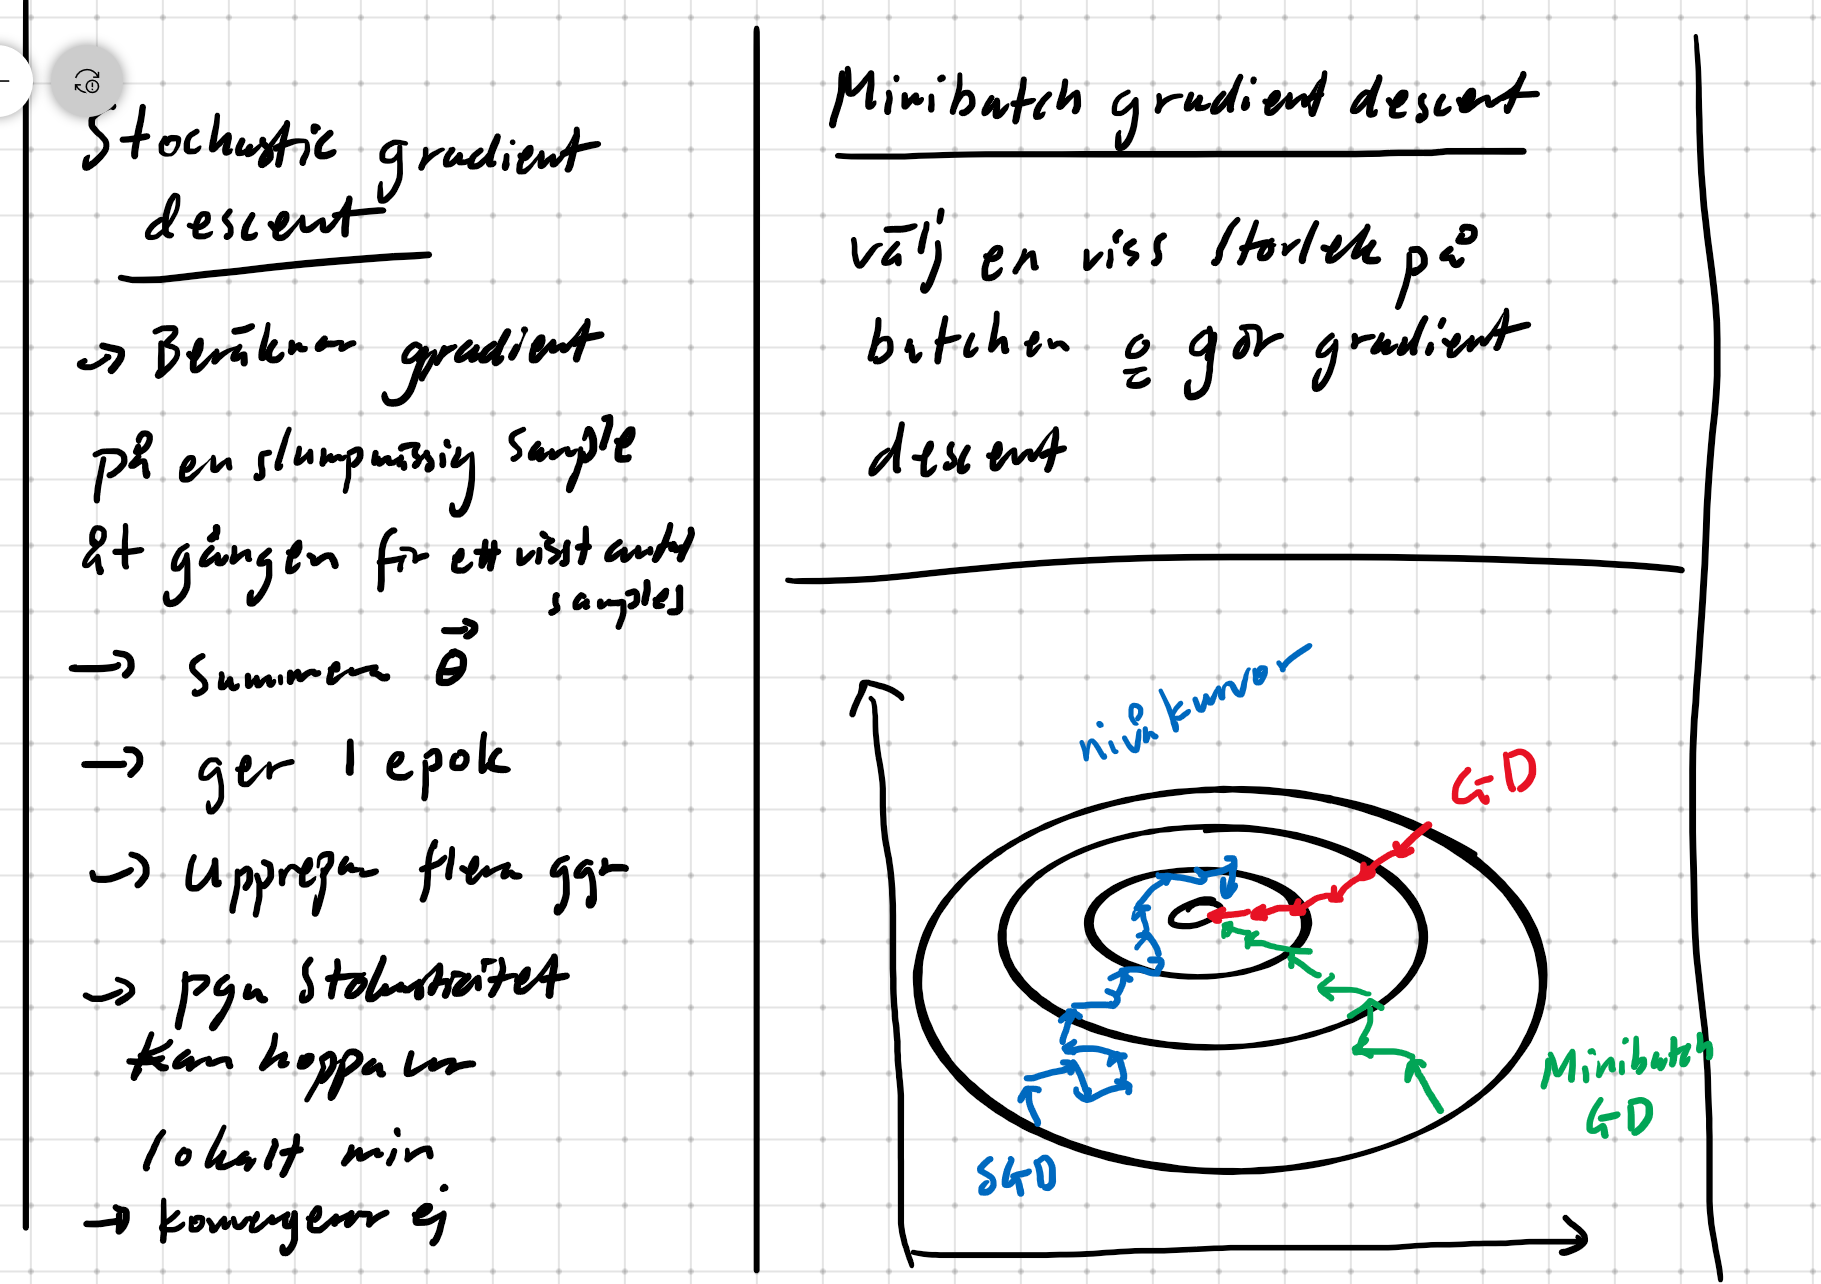 Stochastic gradient
descent
→ Beräknar gradient
på en slumpmässig sample
åt gången för ett visst antal
samples
→ Summera θ⃗
→ ger 1 epok
→ Upprepar flera ggr
→ pga Stokasticitet
kan hoppa ur
lokalt min
→ konvergerar ej
Minibatch gradient descent
välj en viss storlek på
batchen o gör gradient
descent
nivåkurvor
GD
Minibatch
GD
SGD